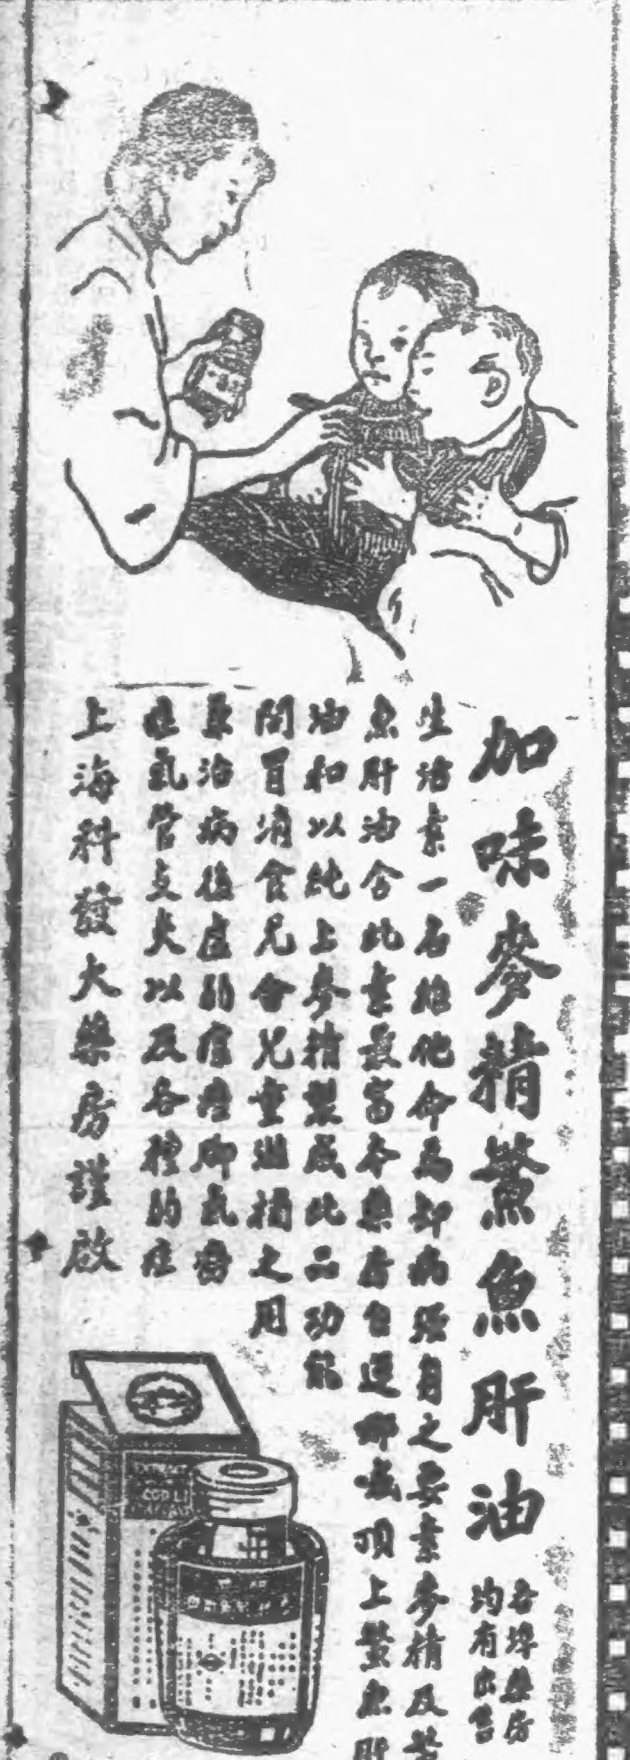 加味麥精鰵魚肝油
各埠藥房
均有出售
生活素一名維他命為却病强身之要素麥精及鰵
魚肝油含此素最富本藥房自運挪威頂上鰵魚肝
油和以純上麥精製成此二功能
開胃消食尤合兒童滋補之用
兼治病後虛弱瘧癆脚氣癆
症氣管支炎以及各種弱症
上海科發大藥房謹啟
COD LI